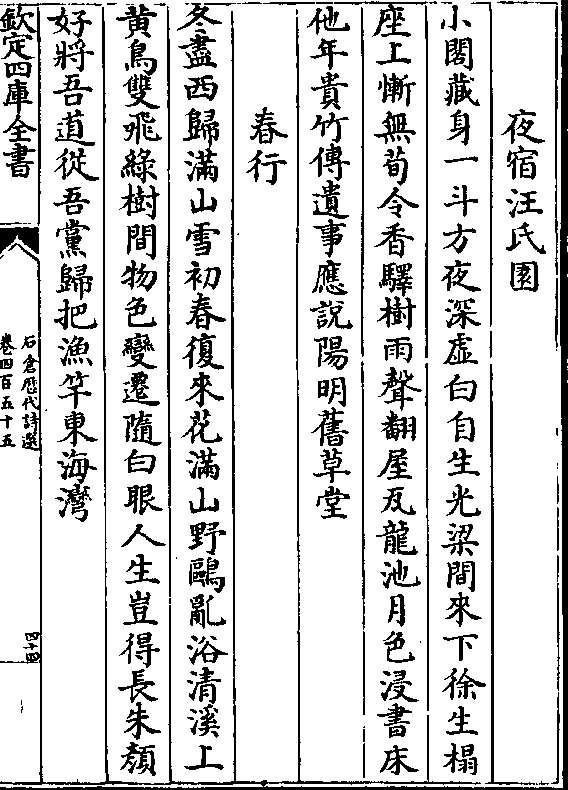 夜宿汪氏園
小閣藏身一斗方夜深虚白自生光梁間來下徐生榻
座上慚無荀令香驛樹雨聲翻屋瓦龍池月色浸書床
他年貴竹傳遺事應說陽明舊草堂
春行
冬盡西歸滿山雪初春復來花滿山野鷗亂浴清溪上
黄鳥雙飛緑樹間物色變遷隨白眼人生豈得長朱顔
好將吾道從吾黨歸把漁竿東海灣
欽定四庫全書
石倉歷代詩選
卷四百五十五
四十四